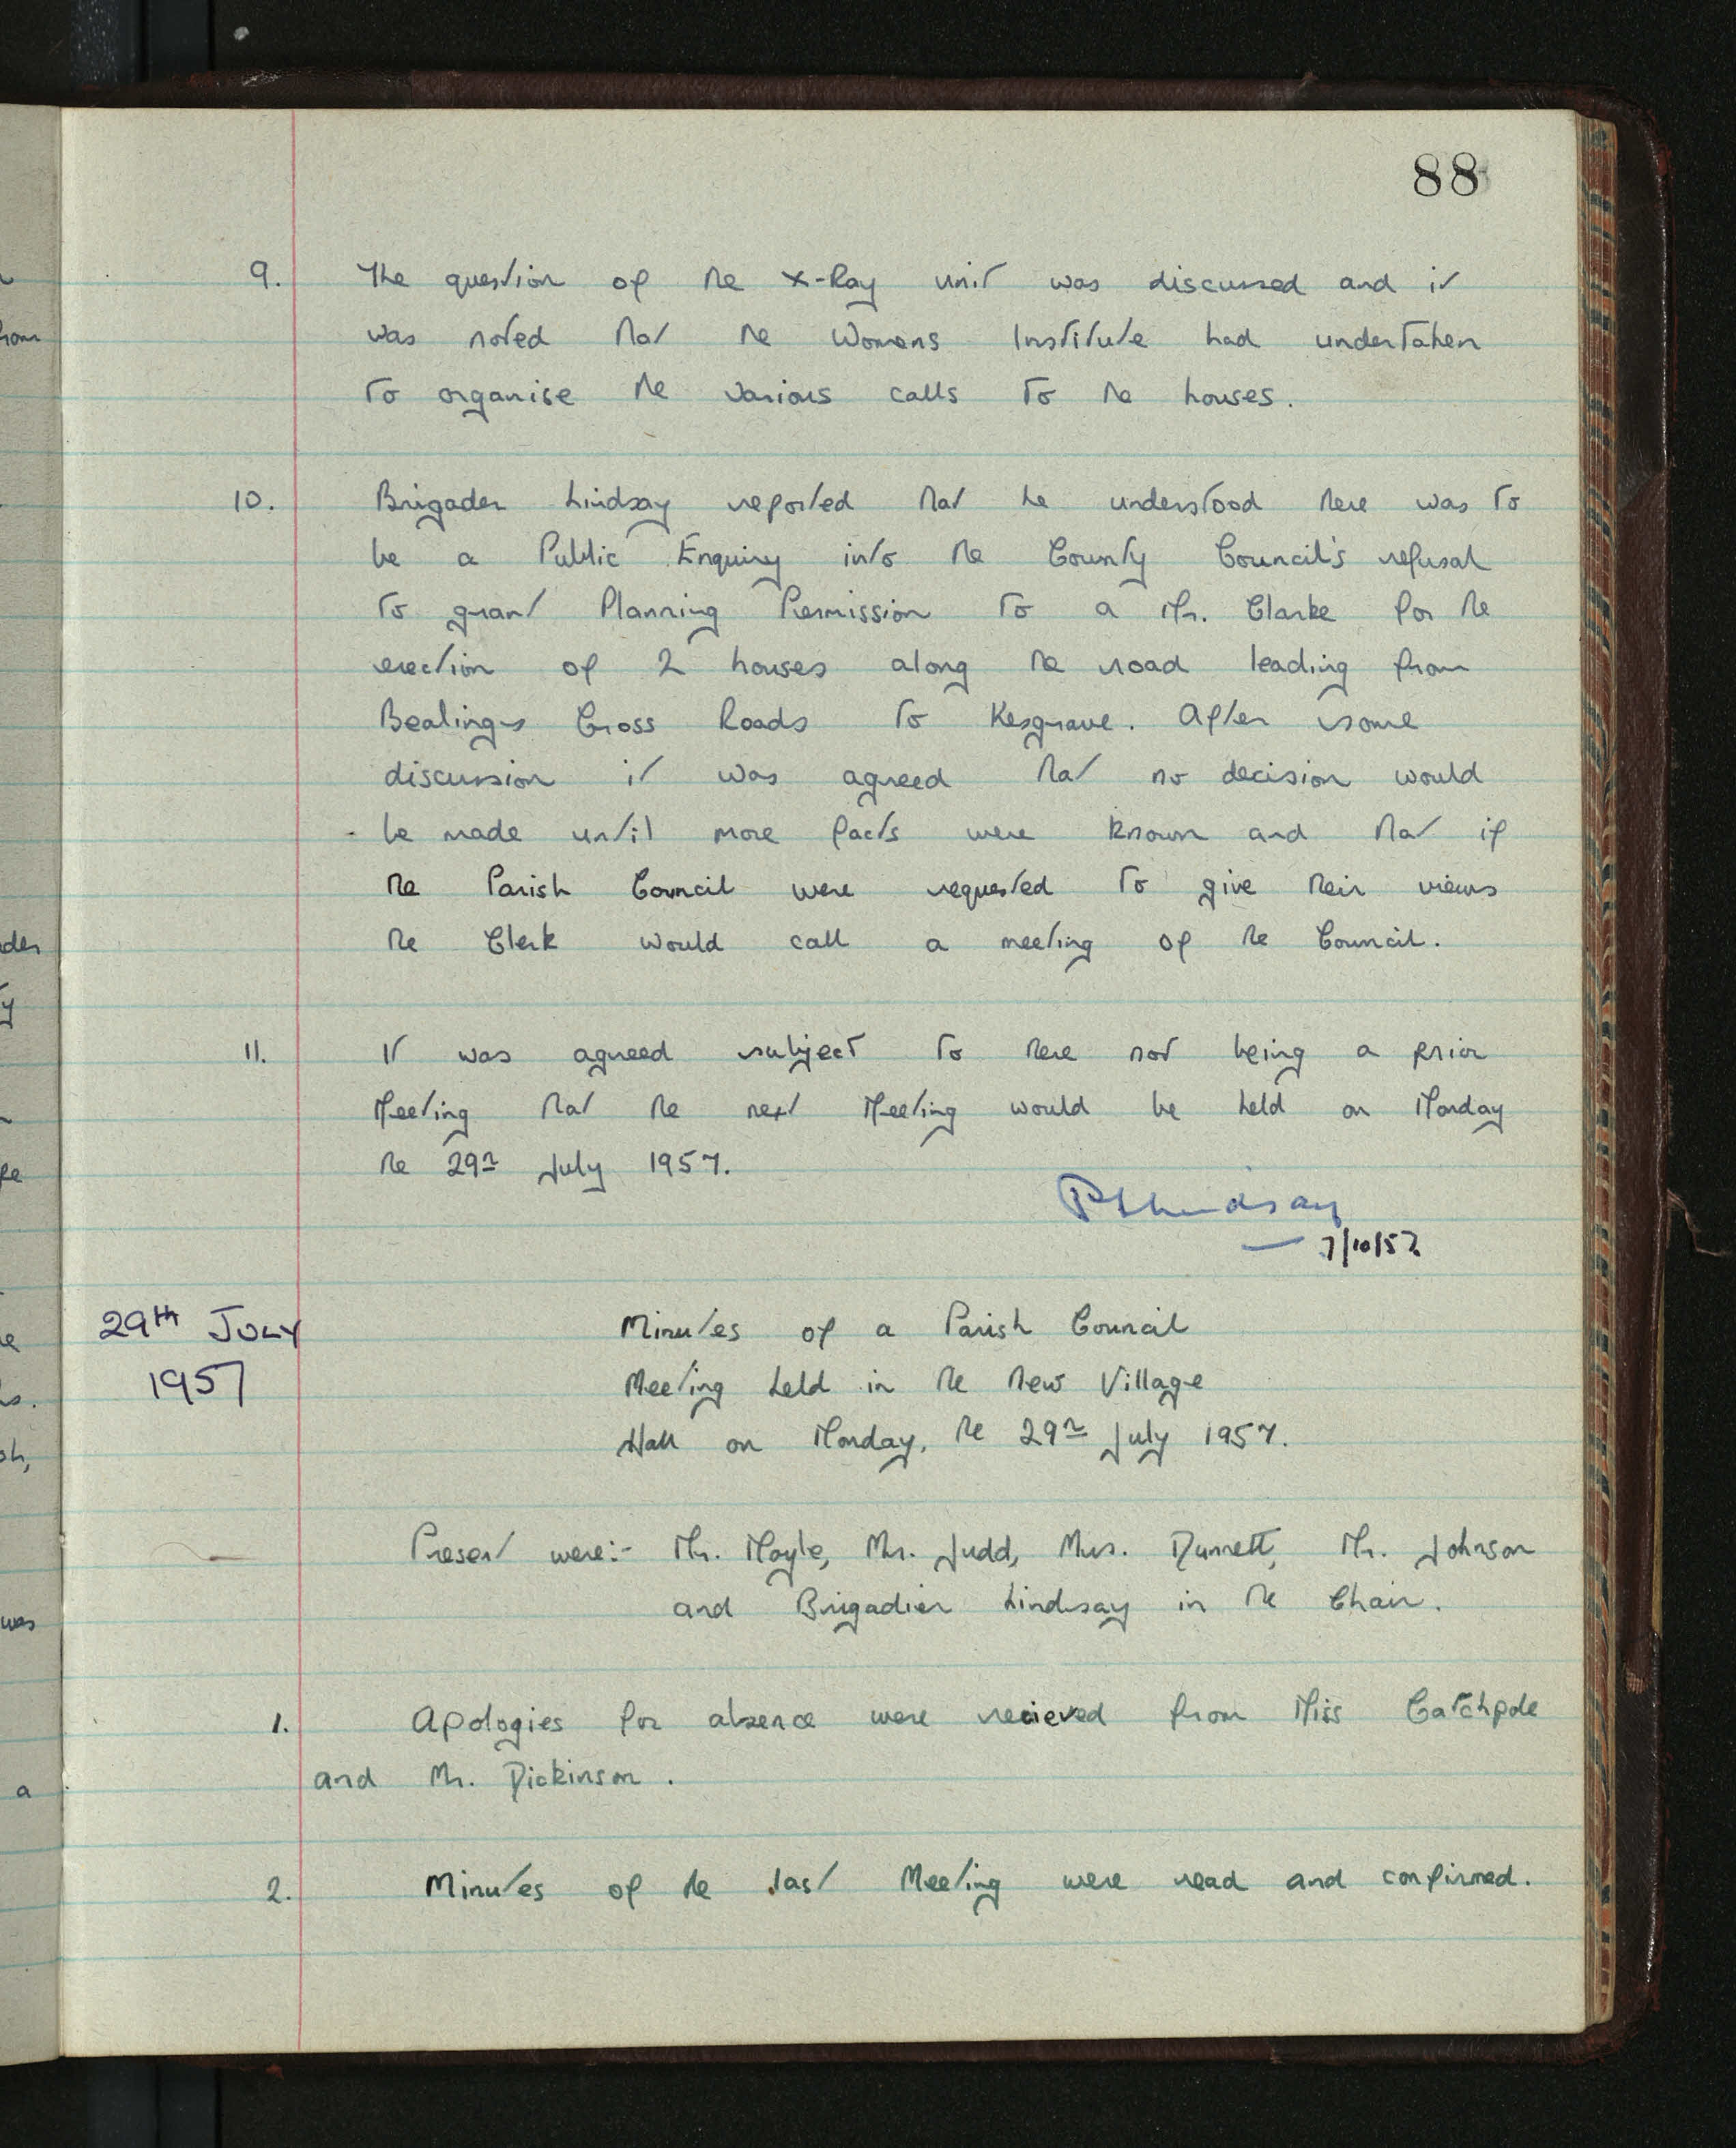 88
9. The question of the X-Ray unit was discussed and it
was noted that the Womens Institute had undertaken
to organise the various calls to the houses.
10. Brigader Lindsay reported that he understood there was to
be a Public Enquiry into the County Council's refusal
to grant Planning Permission to a Mr. Clarke for the
erection of 2 houses along the road leading from
Bealings Cross Roads to Kesgrave. After some
discussion it was agreed that no decision would
be made until more facts were known and that if
the Parish Council were requested to give their views
the Clerk would call a meeting of the Council.
11. It was agreed subject to there not being a prior
Meeting that the next Meeting would be held on Monday
the 29th July 1957.
Lindsay
7/10/57
29th JULY
1957
Minutes of a Parish Council
Meeting held in the New Village
Hall on Monday, the 29th July 1957.
Present were:- Mr. Moyle, Mr. Judd, Mrs. Durrett, Mr. Johnson
and Brigadier Lindsay in the Chair.
1. Apologies for absence were recieved from Miss Catchpole
and Mr. Dickinson.
2. Minutes of the last Meeting were read and confirmed.